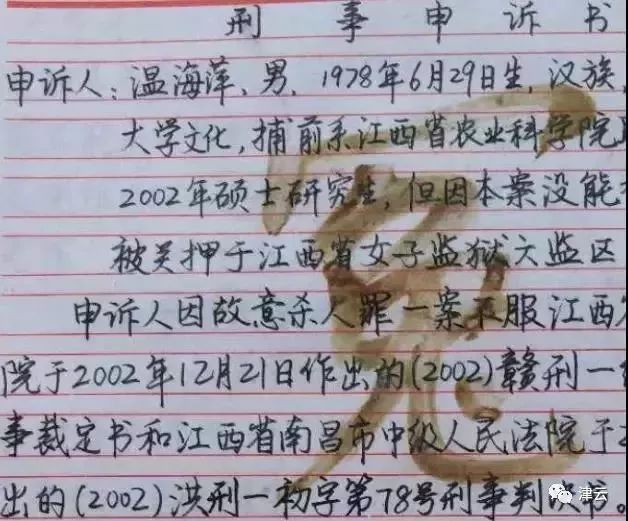 刑事申诉书
申诉人:温海萍、男、1978年6月29日生,汉族,
大学文化,捕前系江西省农业科学院
2002年硕士研究生,但因本案没能
被关押于江西省女子监狱六监区
申诉人因故意杀人罪一案不服江西
院于2002年12月21日作出的(2002)赣刑一
事裁定书和江西省南昌市中级人民法院于
出的(2002)洪刑一初字第78号刑事判决书。
冤
津云